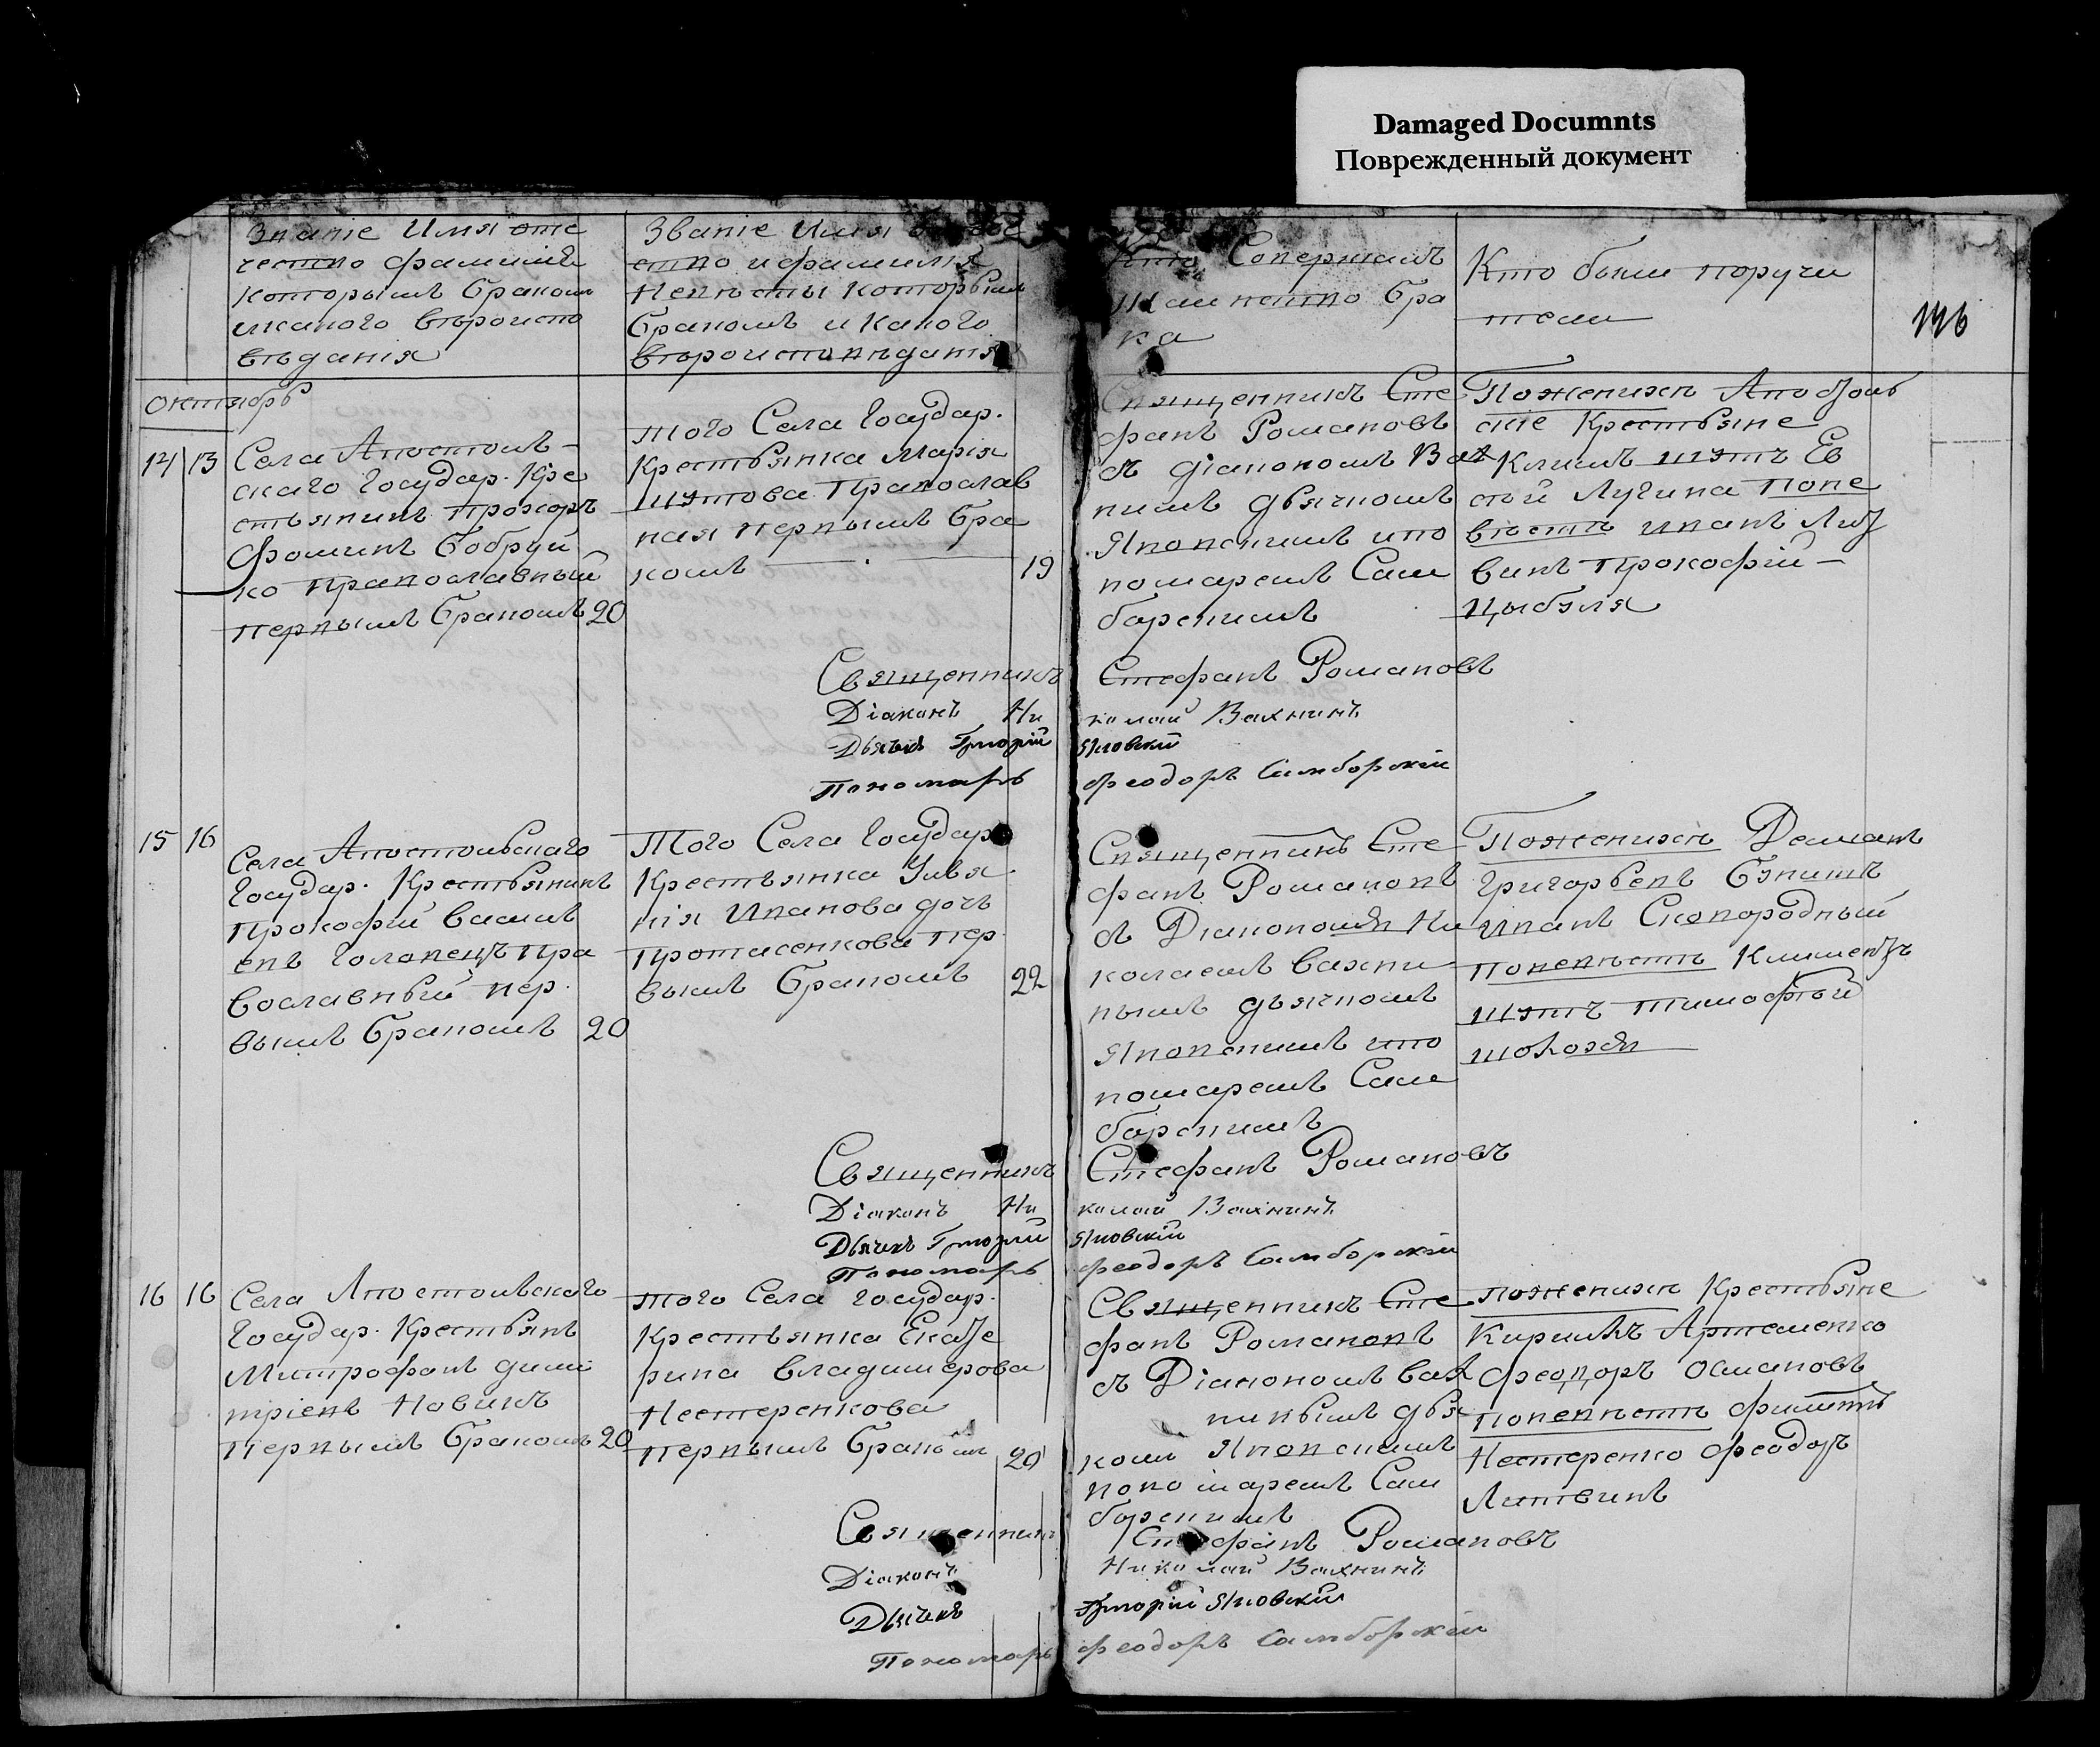 Damaged Documnts
Поврежденный документ
Званіе Имя оте
чество фамилія
которымъ бракомъ
икакого вѣроиспо
вѣданія
Званіе Имя
ство ифамилія
Невѣсты которымъ
бракомъ и какого
вѣроисповѣданія
Кто Совершалъ
Таинство бра
ка
Кто были поручи
тели
146
октябрь
14 13
Села Апостоль-
скаго Государ. Кре
стьянинъ Прохоръ
Фоминъ Бобруй
ко православный
первымъ бракомъ 20
того Села Государ.
Крестьянка Марія
Шэтова Православ
ная первымъ бра
комъ 19
Священникъ Сте
фанъ Романовъ
съ діакономъ Вах
нинъ дьячкомъ
Яновскимъ ипо
номаремъ Сам
борскимъ
Поженихѣ Апостоль
скіе Крестьяне
Климъ Шэтъ Ев
сѣй Лугина поне
вѣстѣ иванъ Лит
винъ Прокофій
Цыбэля
Священникъ Стефанъ Романовъ
Діаконъ Николай Вахнинъ
Дьячкъ Григорій Яновскій
Пономарь Феодоръ Самборскій
15 16
Села Апостольскаго
Государ. Крестьянинъ
Прокофій Василь
евъ Головецъ пра
вославный пер.
вымъ бракомъ 20
Того Села Государ.
Крестьянка Улья
нія Иванова дочь
Протасенкова пер.
вымъ бракомъ 22
Священникъ Сте
фанъ Романовъ
съ Діакономъ Ни
колаемъ Вахни
нымъ дьячкомъ
Яновскимъ ипо
номаремъ Сам
борскимъ
Поженихѣ Демьянъ
Григорьевъ
иванъ Сковородный
поневѣстѣ Климентъ
шэтъ тимофѣй
Священникъ Стефанъ Романовъ
Діаконъ Николай Вахнинъ
Дьячкъ Григорій Яновскій
Пономарь Феодоръ Самборскій
16 16
Села Апостольскаго
Государ. Крестьянъ
Митрофанъ дими
тріевъ Новикъ
Первымъ бракомъ 20
того Села государ.
Крестьянка Екате
рина Владимерова
Нестеренкова
первымъ бракомъ 20
Священникъ Сте
фанъ Романовъ
съ Діакономъ Вах
нинымъ дья
комъ Яновскимъ
пономаремъ Сам
борскимъ
поженихѣ Крестьяне
Кирилъ Артеменко
феодоръ Османовъ
поневѣстѣ филиппъ
Нестеренко феодоръ
Литвинъ
Священникъ Стефанъ Романовъ
Діаконъ Николай Вахнинъ
Дьячкъ Григорій Яновскій
Пономарь Феодоръ Самборскій